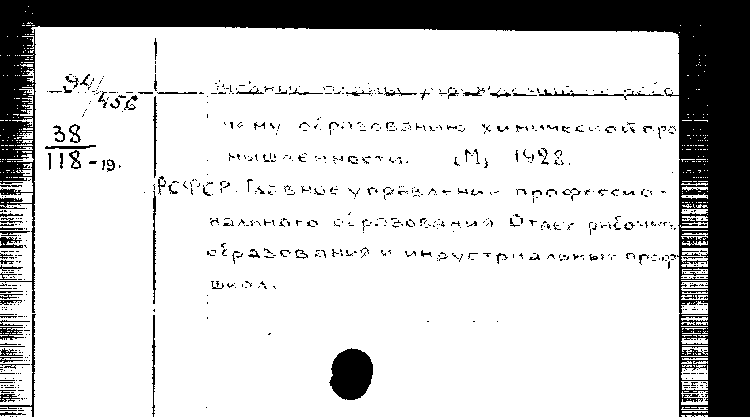 94/456
Учебные планы учреждений по рабо
чему образованию химической про
38
118-19.
мышленности. [М], 1928.
РСФСР. Главное управление профессио-
нального образования Отдел рабочего
образования и индустриальных проф
школ.